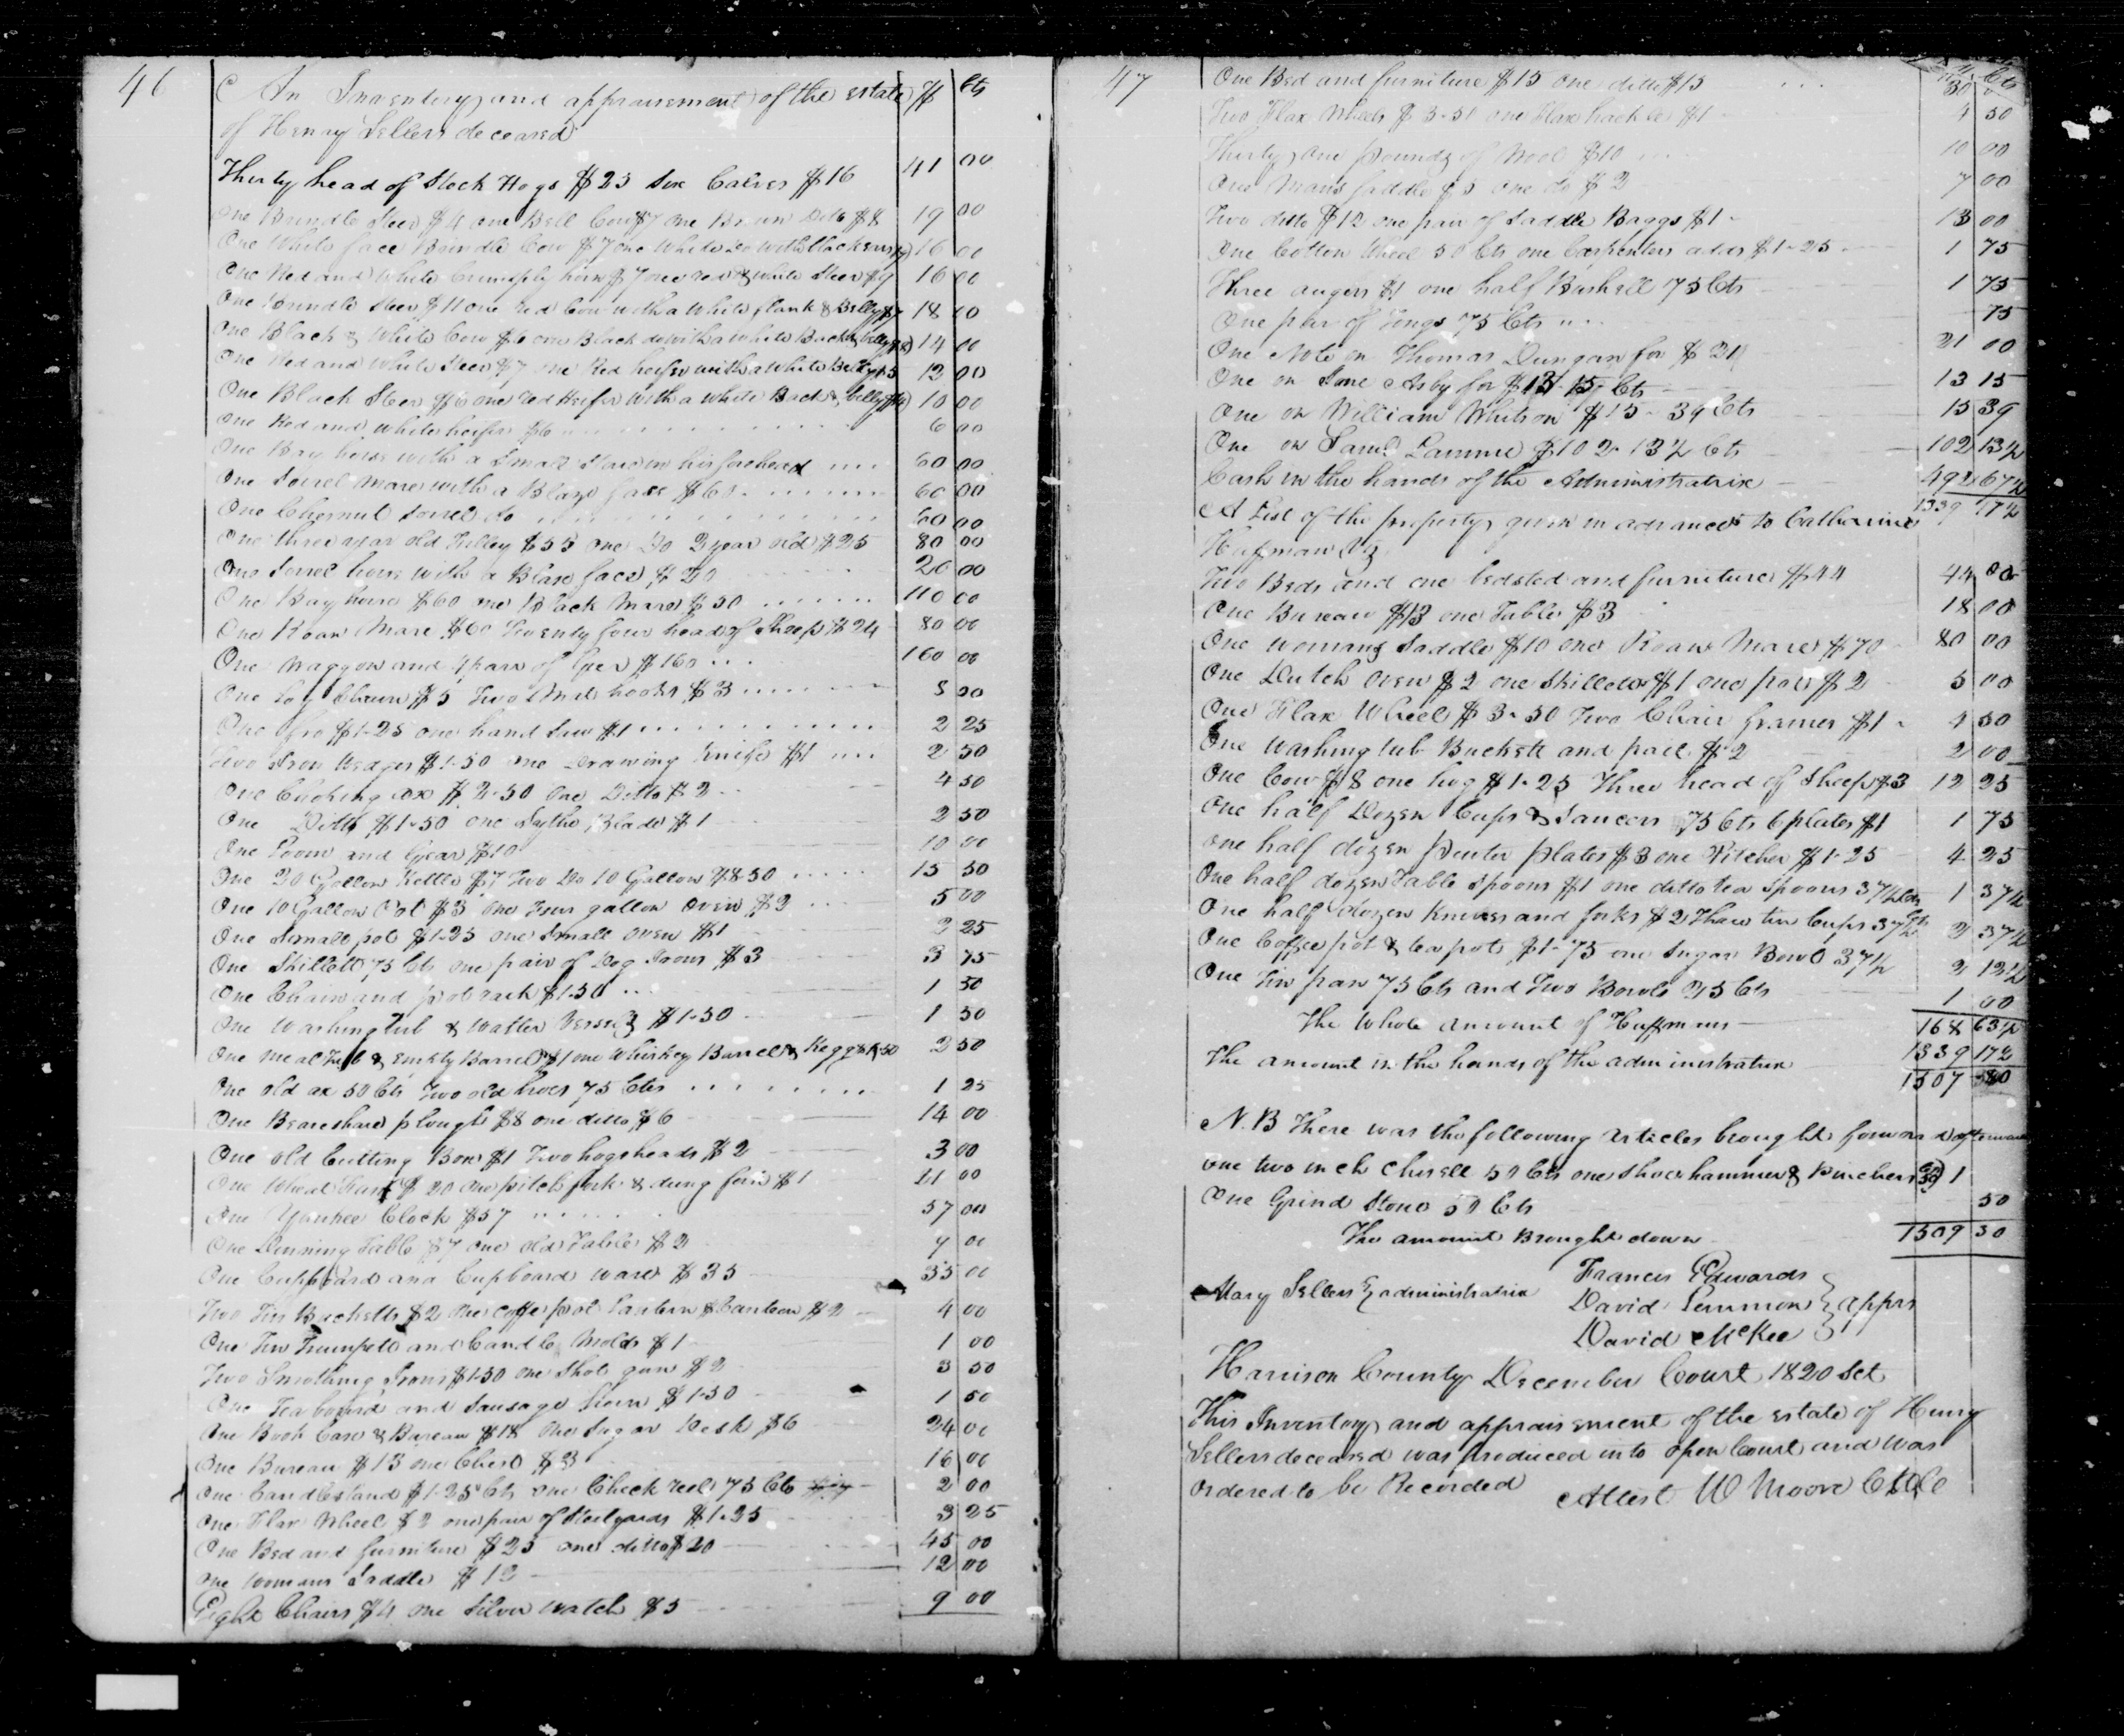 46
An Inventory and appraisement of the estate $ Cts
of Henry Sellers deceased
Thirty head of Stock Hogs $25 Six Calves $16 41 00
One Brindle Steer $4 one Bell Cow $7 one Brown Ditto $8 19 00
One White face Brindle Cow $7 one White do with black ears 16 00
One Red and White horn $7 one red & white Steer $9 16 00
One Brindle Steer $11 one red Cow with a White flank & Belly $7 18 00
One Black & White Cow $6 one Black do with a White Back & belly 14 00
One Red and white Steer $7 one Red heifer with a White Belly $5 12 00
One Black Steer $6 one red Heifer with a white Back & belly 10 00
One Red and white heifer $6 6 00
One Bay horse with a Small Star in his forehead 60 00
One Sorrel Mare with a Blaze face $60 60 00
One Chesnut Sorrel do 60 00
One three year old Filley $55 one Do 2 year old $25 80 00
One Sorrel horse with a Blaze face $20 20 00
One Bay horse $60 one Black Mare $50 110 00
One Roan Mare $60 Twenty four head of Sheep $24 80 00
One Waggon and 4 pair of Geer $160 160 00
One Log Chain $5 Two Mat hooks $3 8 00
One fro $1-25 one hand Saw $1 2 25
Two Iron Wedges $1-50 one Drawing Knife $1 2 50
One ax $2-50 One Ditto $2 4 50
One Ditto $1-50 one Sythe Blade $1 2 50
One Loom and Gear $10 10 00
One 20 Gallon Kettle $7 Two Do 10 Gallon $8-50 15 50
One 10 Gallon Pot $3 one Four gallon Oven $2 5 00
One Small pot $1-25 one Small oven $1 2 25
One Skillett 75 Cts one pair of Dog Irons $3 3 75
One Chain and pot rack $1-50 1 50
One Washing Tub & Watter Vessel $1-50 1 50
One meal Tub & empty Barrel $1 one Whiskey Barrel & Kegg $1-50 2 50
One old ax 50 Cts Two old hoes 75 Cts 1 25
One Beareshare plough $8 one ditto $6 14 00
One old Cutting Box $1 Two hogsheads $2 3 00
One Wheat Fan $20 one pitch fork & dung fork $1 21 00
One Yankee Clock $57 57 00
One Dinning Table $7 one old Table $2 9 00
One Cuppoard and Cupboard ware $35 35 00
Two Tin Bucketts $2 one coffe pot Lantern & Canteen $2 4 00
One Tin Trumpett and Candle Molds $1 1 00
Two Smothing Irons $1-50 one Shot gun $2 3 50
One Tea board and Sausage $1-50 1 50
One Book Case & Bureau $18 One Sugar Desk $6 24 00
One Bureau $13 one Chest $3 16 00
One Candlestand $1-25 Cts one Check reel 75 Cts 2 00
One Flax Wheel $2 one pair of Steelyards $1-25 3 25
One Bed and furniture $25 one ditto $20 45 00
One Womans Saddle $12 12 00
Eight Chairs $4 one Silver Watch $5 9 00
47
One Bed and furniture $15 one ditto $15 30
Two Flax Wheels $3-50 one Flax hackle $1 4 50
Thirty one pounds of Wool $10 10 00
One Mans Saddle $5 one do $2 7 00
Two ditto $12 one pair of Saddle Baggs $1 13 00
One Cotton Wheel 50 Cts one Carpenters adds $1-25 1 75
Three augers $1 one half Bushell 75 Cts 1 75
One pair of Tongs 75 Cts 75
One Note on Thomas Dungan for $21 21 00
One on Asby for $13-15 Cts 13 15
One on William Whitson $15-39 Cts 15 39
One on Saml Lammie $102-13½ Cts 102 13½
Cash in the hands of the Administratrix 492 67½
1339 17½
A List of the property given in advance to Catharine
Huffman Viz
Two Beds and one bedsted and furniture $44 44 00
One Bureau $15 one Table $3 18 00
One womans Saddle $10 one Roan Mare $70 80 00
One Dutch Oven $2 one Skillet $1 one pot $2 5 00
One Flax Wheel $3-50 Two Chair frames $1 4 50
One Washing tub Buckett and pail $2 2 00
One Cow $8 one hog $1-25 Three head of Sheep $3 12 25
One half Dozen Cups & Saucers 75 Cts 6 plates $1 1 75
One half dozen pewter plates $3 one Pitcher $1-25 4 25
One half dozen Table Spoons $1 one ditto tea Spoons 37½ Cts 1 37½
One half dozen Knives and forks $2 Three tin Cups 37½ Cts 2 37½
One Coffee pot & tea pot $1-75 one Sugar Bowl 37½ 2 12½
One Tin pan 75 Cts and Two Bowls 25 Cts 1 00
The whole amount of Huffmans 168 63½
The amount in the hands of the administratrix 1339 17½
1507 80
N.B There was the following articles brought forward afterwards
one two inch Chisell 50 Cts one Shoe hammer & Pinchers 50 1
One Grind Stone 50 Cts 50
The amount Brought down 1509 30
Mary Sellers administratrix
Francis Edwards
David Lemmon apprs
David McKee
Harrison County December Court 1820 Sct
This Inventory and appraisement of the estate of Henry
Sellers deceased was produced in to open Court and was
ordered to be Recorded
Attest W Moore